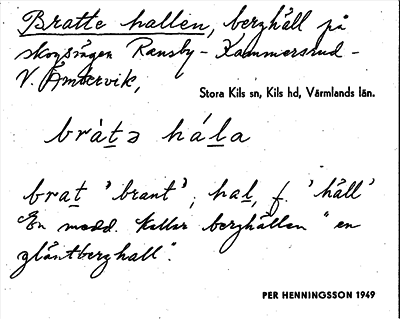 Bratte hallen, berghäll på
skogsängen Ransby - Kammersrud -
V. Ämtervik,
Stora Kils sn, Kils hd, Värmlands län.
bràt̲ə hál̲a
brat̲ 'brant'; hal̲, f. 'häll'
En medd. kallar berghällen "en
släntberghall".
PER HENNINGSSON 1949